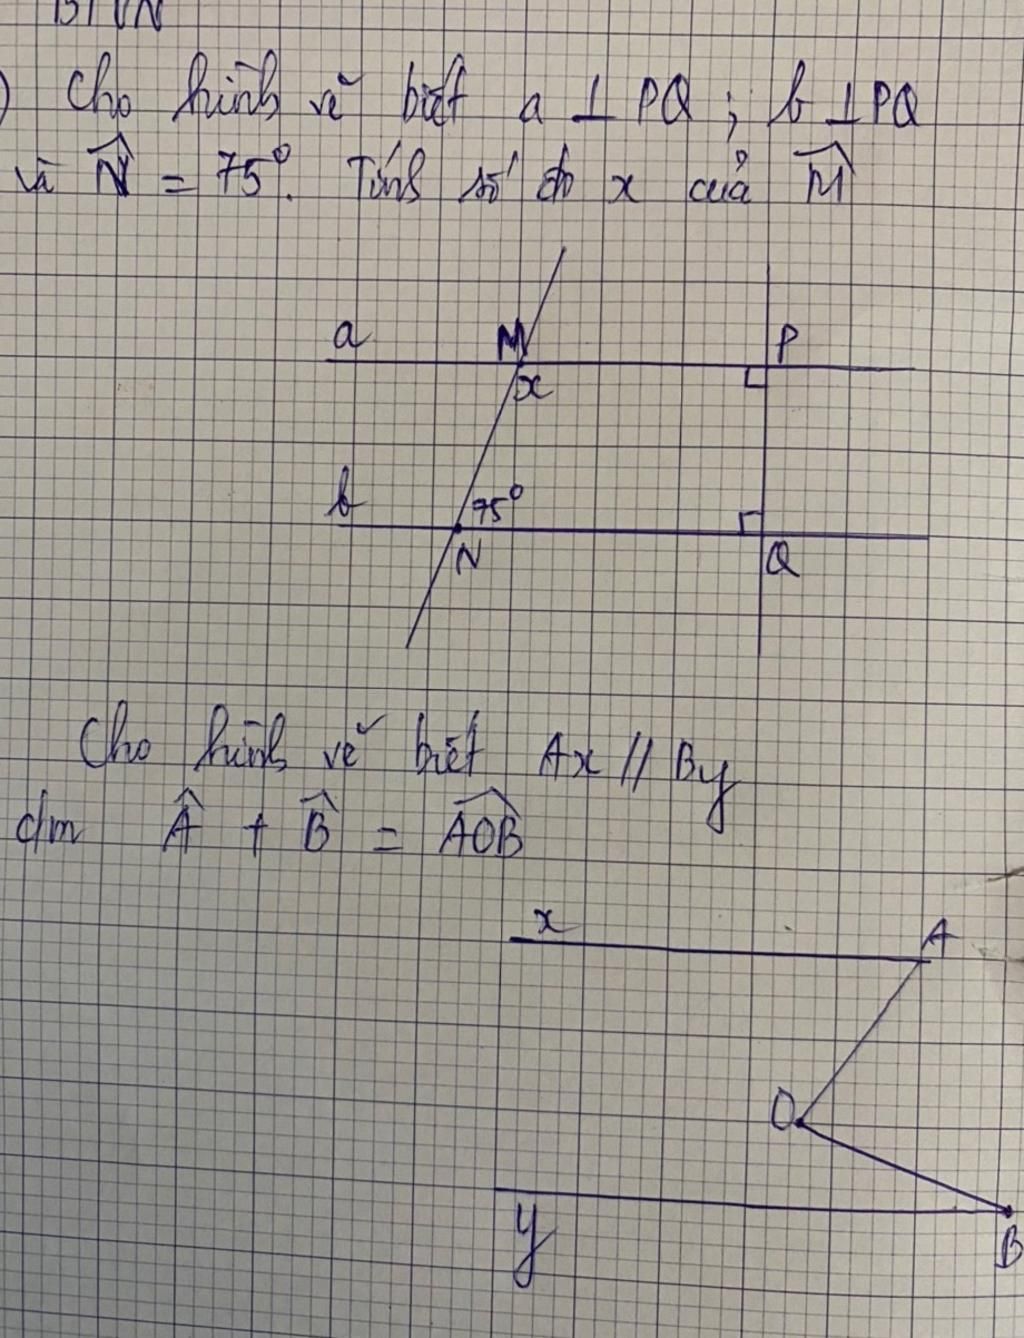 BTVN
) Cho hình vẽ biết a ⊥ PQ ; b ⊥ PQ
và N̂ = 75°. Tính số đo x của M̂
a M P
x
b 75°
N Q
Cho hình vẽ biết Ax // By
c/m Â + B̂ = AÔB
x A
O
y B